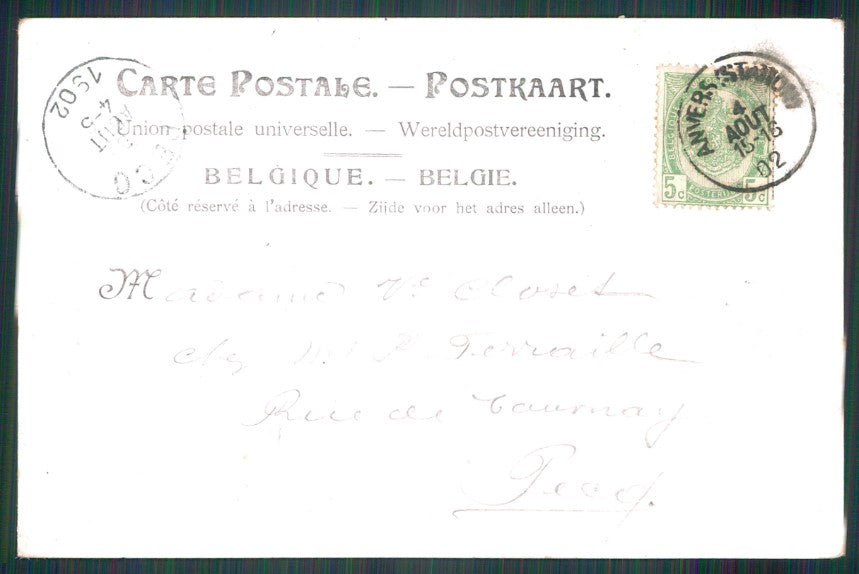 CARTE POSTALE. — POSTKAART.
Union postale universelle. — Wereldpostvereeniging.
BELGIQUE. — BELGIE.
(Côté réservé à l'adresse. — Zijde voor het adres alleen.)
5c 5c
ANVERS
4
AOUT
15-16
02
1902
Madame Vᵉ Closet
chez Mʳ P. Ferraille
Rue de Tournay
Pecq.